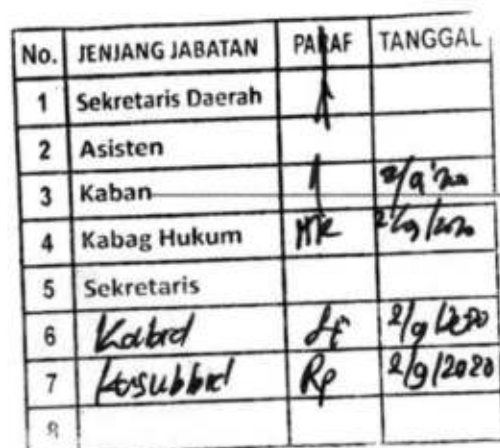 No. JENJANG JABATAN PARAF TANGGAL
1 Sekretaris Daerah
2 Asisten
3 Kaban
4 Kabag Hukum
5 Sekretaris
6 Kabid 2/9/2020
7 Kasubbid Rp 2/9/2020
8